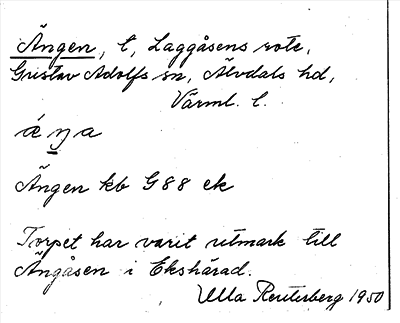 Ängen, t, Laggåsens rote,
Gustav Adolfs sn, Älvdals hd,
Värml. l.
áŋa
Ängen kb G88 ek
Torpet har varit utmark till
Ängåsen i Ekshärad.
Ulla Reuterberg 1950